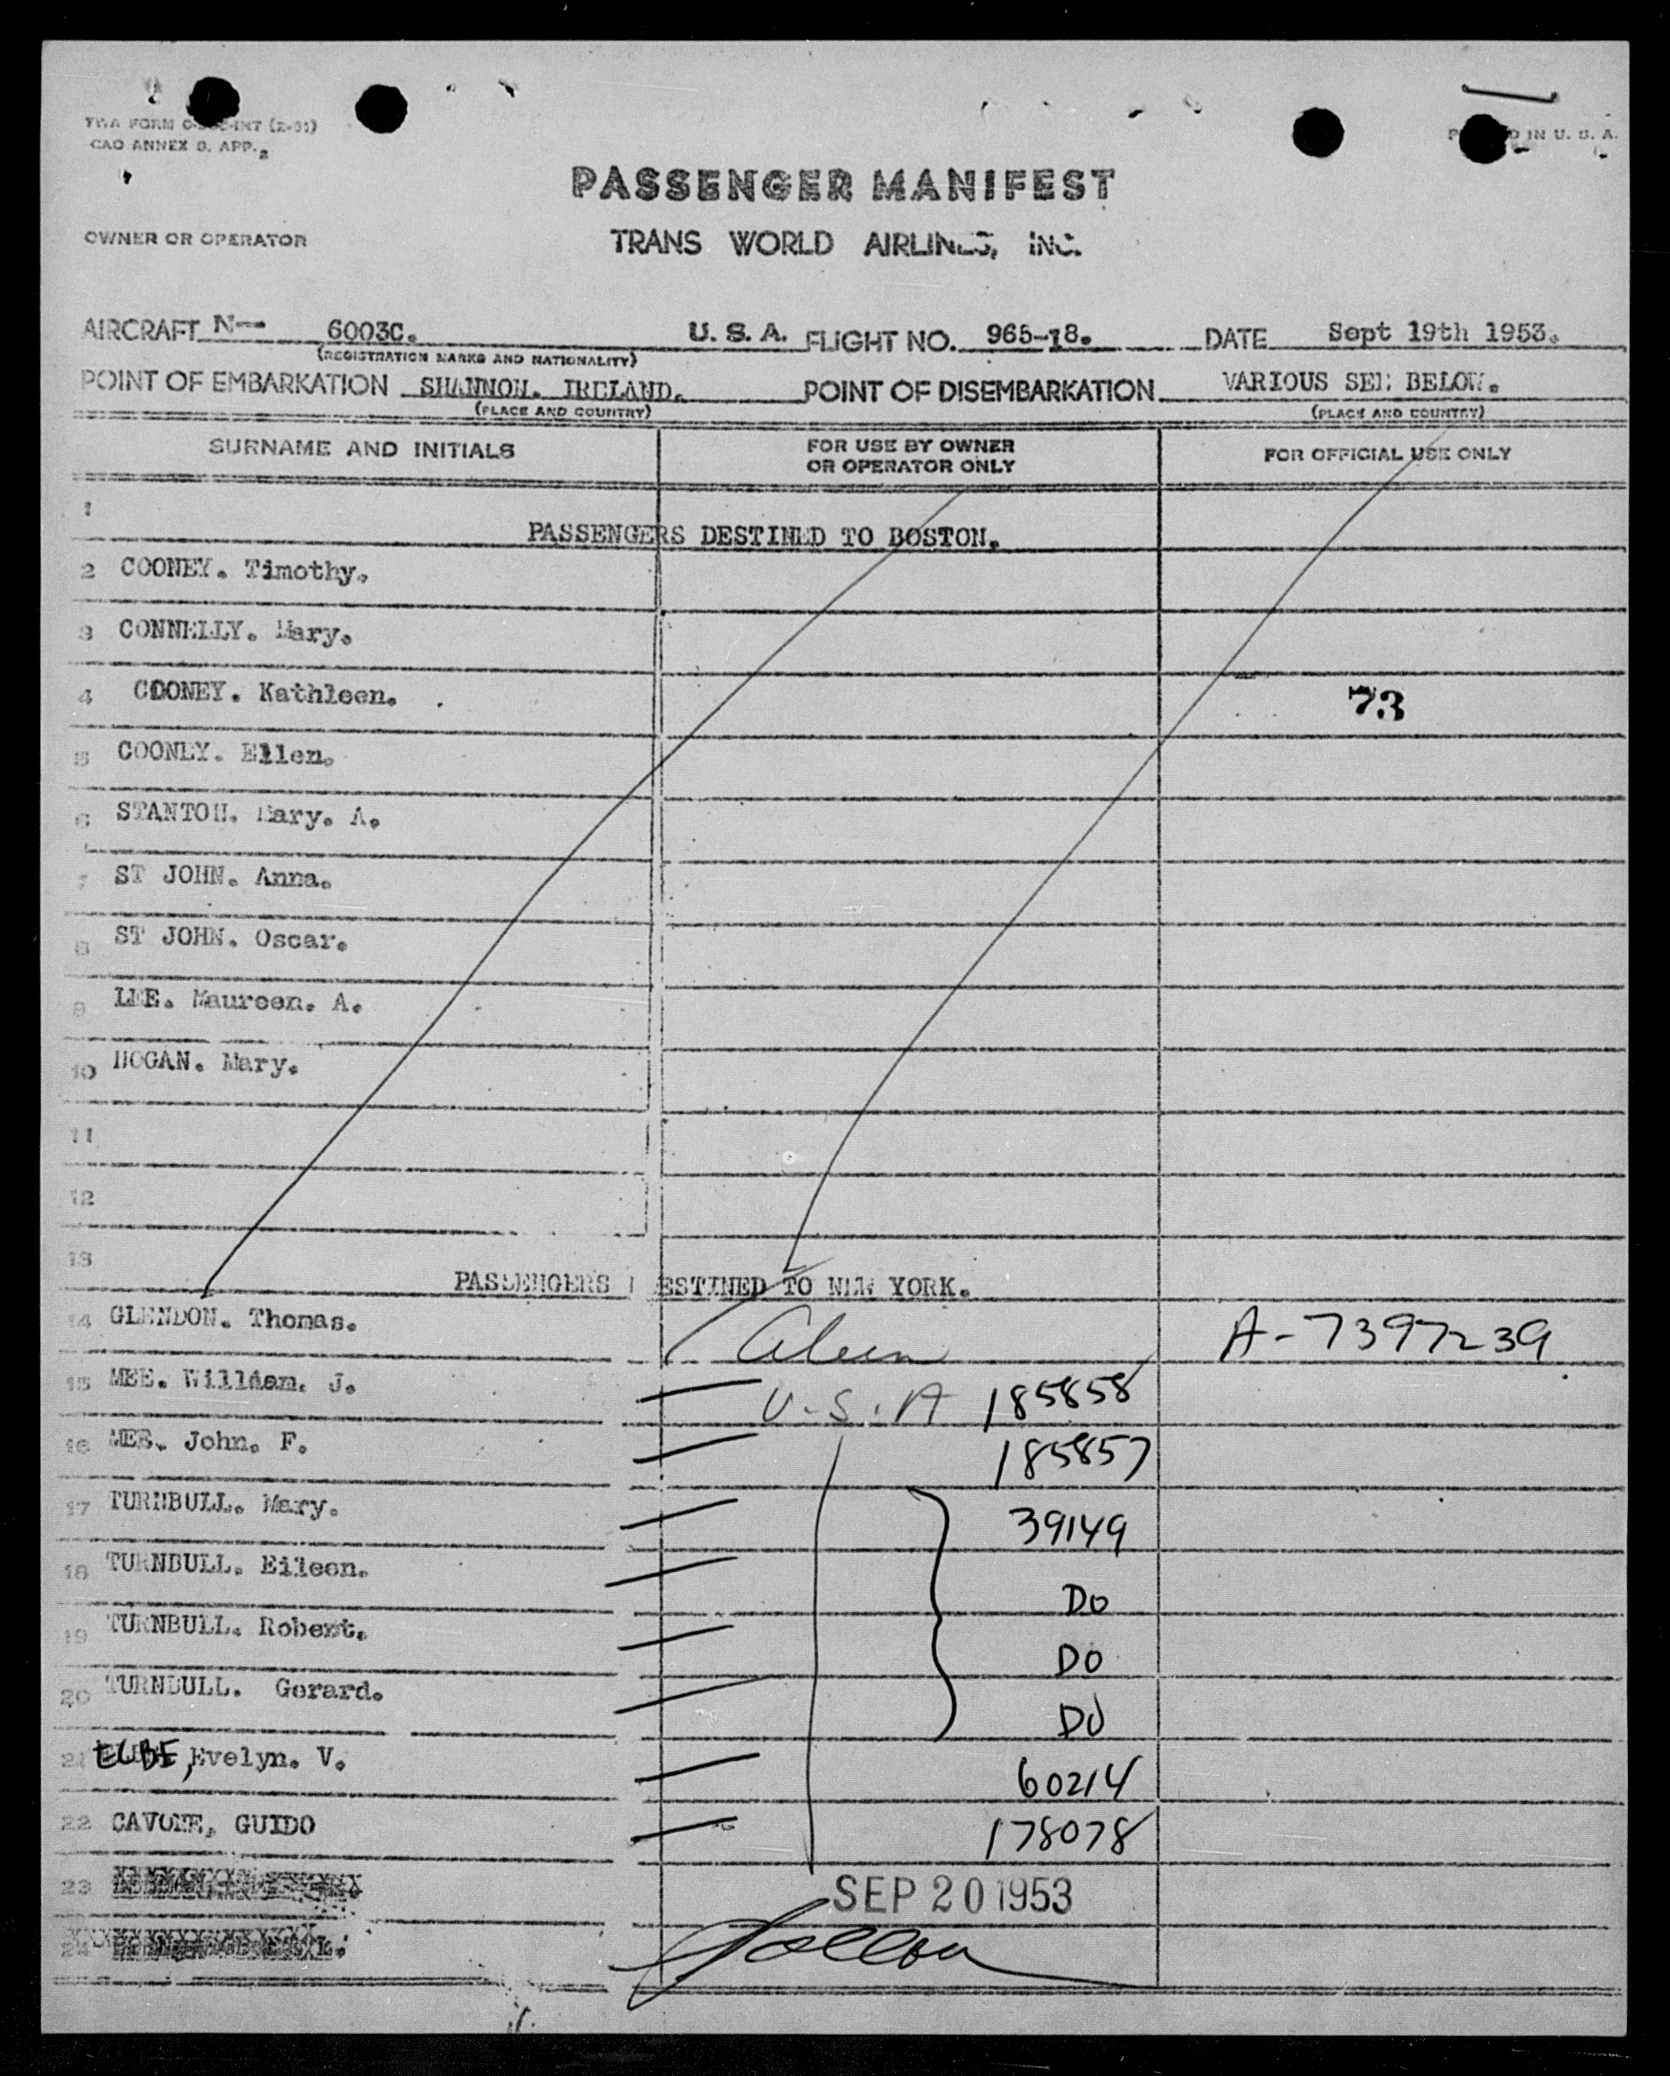 TWA FORM (2-51)
PRINTED IN U. S. A.
CAO ANNEX 9. APP. 2
PASSENGER MANIFEST
OWNER OR OPERATOR
TRANS WORLD AIRLINES, INC.
AIRCRAFT N-- 6003C. U. S. A. FLIGHT NO. 965-18. DATE Sept 19th 1953.
(REGISTRATION MARKS AND NATIONALITY)
POINT OF EMBARKATION SHANNON. IRELAND. POINT OF DISEMBARKATION VARIOUS SEE BELOW.
(PLACE AND COUNTRY) (PLACE AND COUNTRY)
SURNAME AND INITIALS FOR USE BY OWNER OR OPERATOR ONLY FOR OFFICIAL USE ONLY
1 PASSENGERS DESTINED TO BOSTON.
2 COONEY. Timothy.
3 CONNELLY. Mary.
4 COONEY. Kathleen. 73
5 COONEY. Ellen.
6 STANTON. Mary. A.
7 ST JOHN. Anna.
8 ST JOHN. Oscar.
9 LEE. Maureen. A.
10 HOGAN. Mary.
11
12
13 PASSENGERS DESTINED TO NEW YORK.
14 GLENDON. Thomas. Alien A-7397239
15 MEE. William. J. U.S.A 185858
16 MEE. John. F. 185857
17 TURNBULL. Mary. 39149
18 TURNBULL. Eileen. DO
19 TURNBULL. Robert. DO
20 TURNBULL. Gerard. DO
21 Evelyn. V. 60214
22 CAVONE, GUIDO 178078
23
SEP 20 1953
24